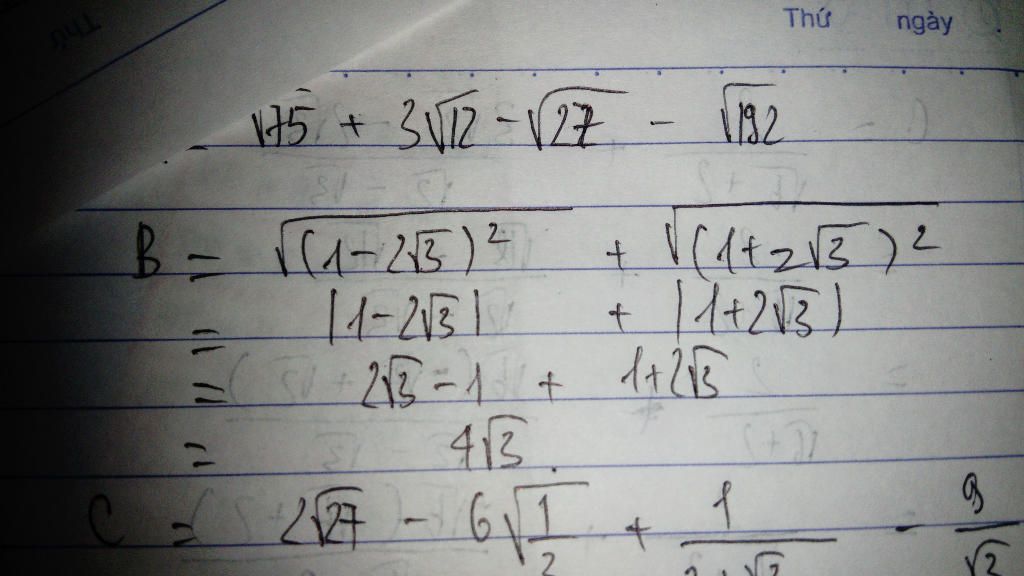 Thứ ngày
= √75 + 3√12 - √27 - √192
B = √(1-2√3)² + √(1+2√3)²
= |1-2√3| + |1+2√3|
= 2√3 - 1 + 1+2√3
= 4√3.
C = 2√27 - 6√1/ + 1/ - 9/